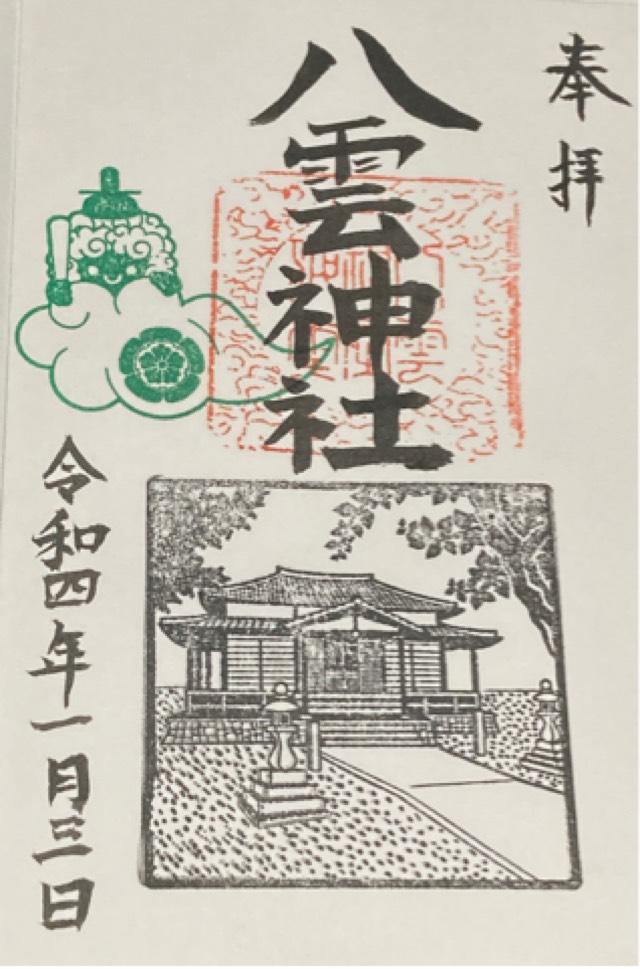 奉拝
八雲神社
令和四年一月三日